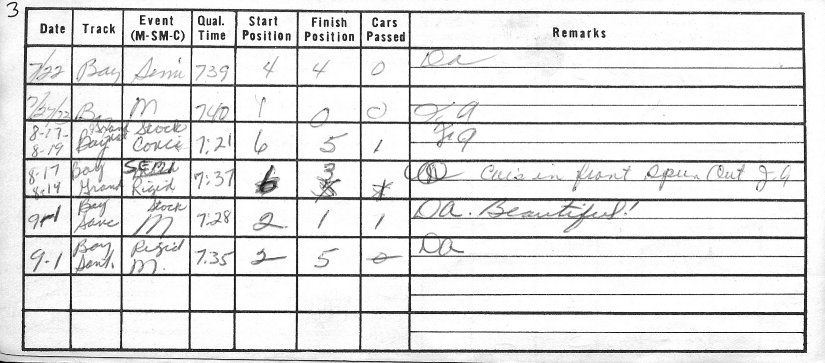 3
Date Track Event (M-SM-C) Qual. Time Start Position Finish Position Cars Passed Remarks
7/22 Bay Semi 739 4 4 0 Da
M 740 1 0 0 J.G
8-17- 8-19 Bay Stock 7:21 6 5 1 J.G
8-17 8-19 Bay Grand SEMI Rigid 7:37 6 3 Cars in front Spun Out J.G
9-1 Bay Stock M 7:28 2 1 1 Da. Beautiful!
9-1 Bay Rigid M. 7.35 2 5 0 Da